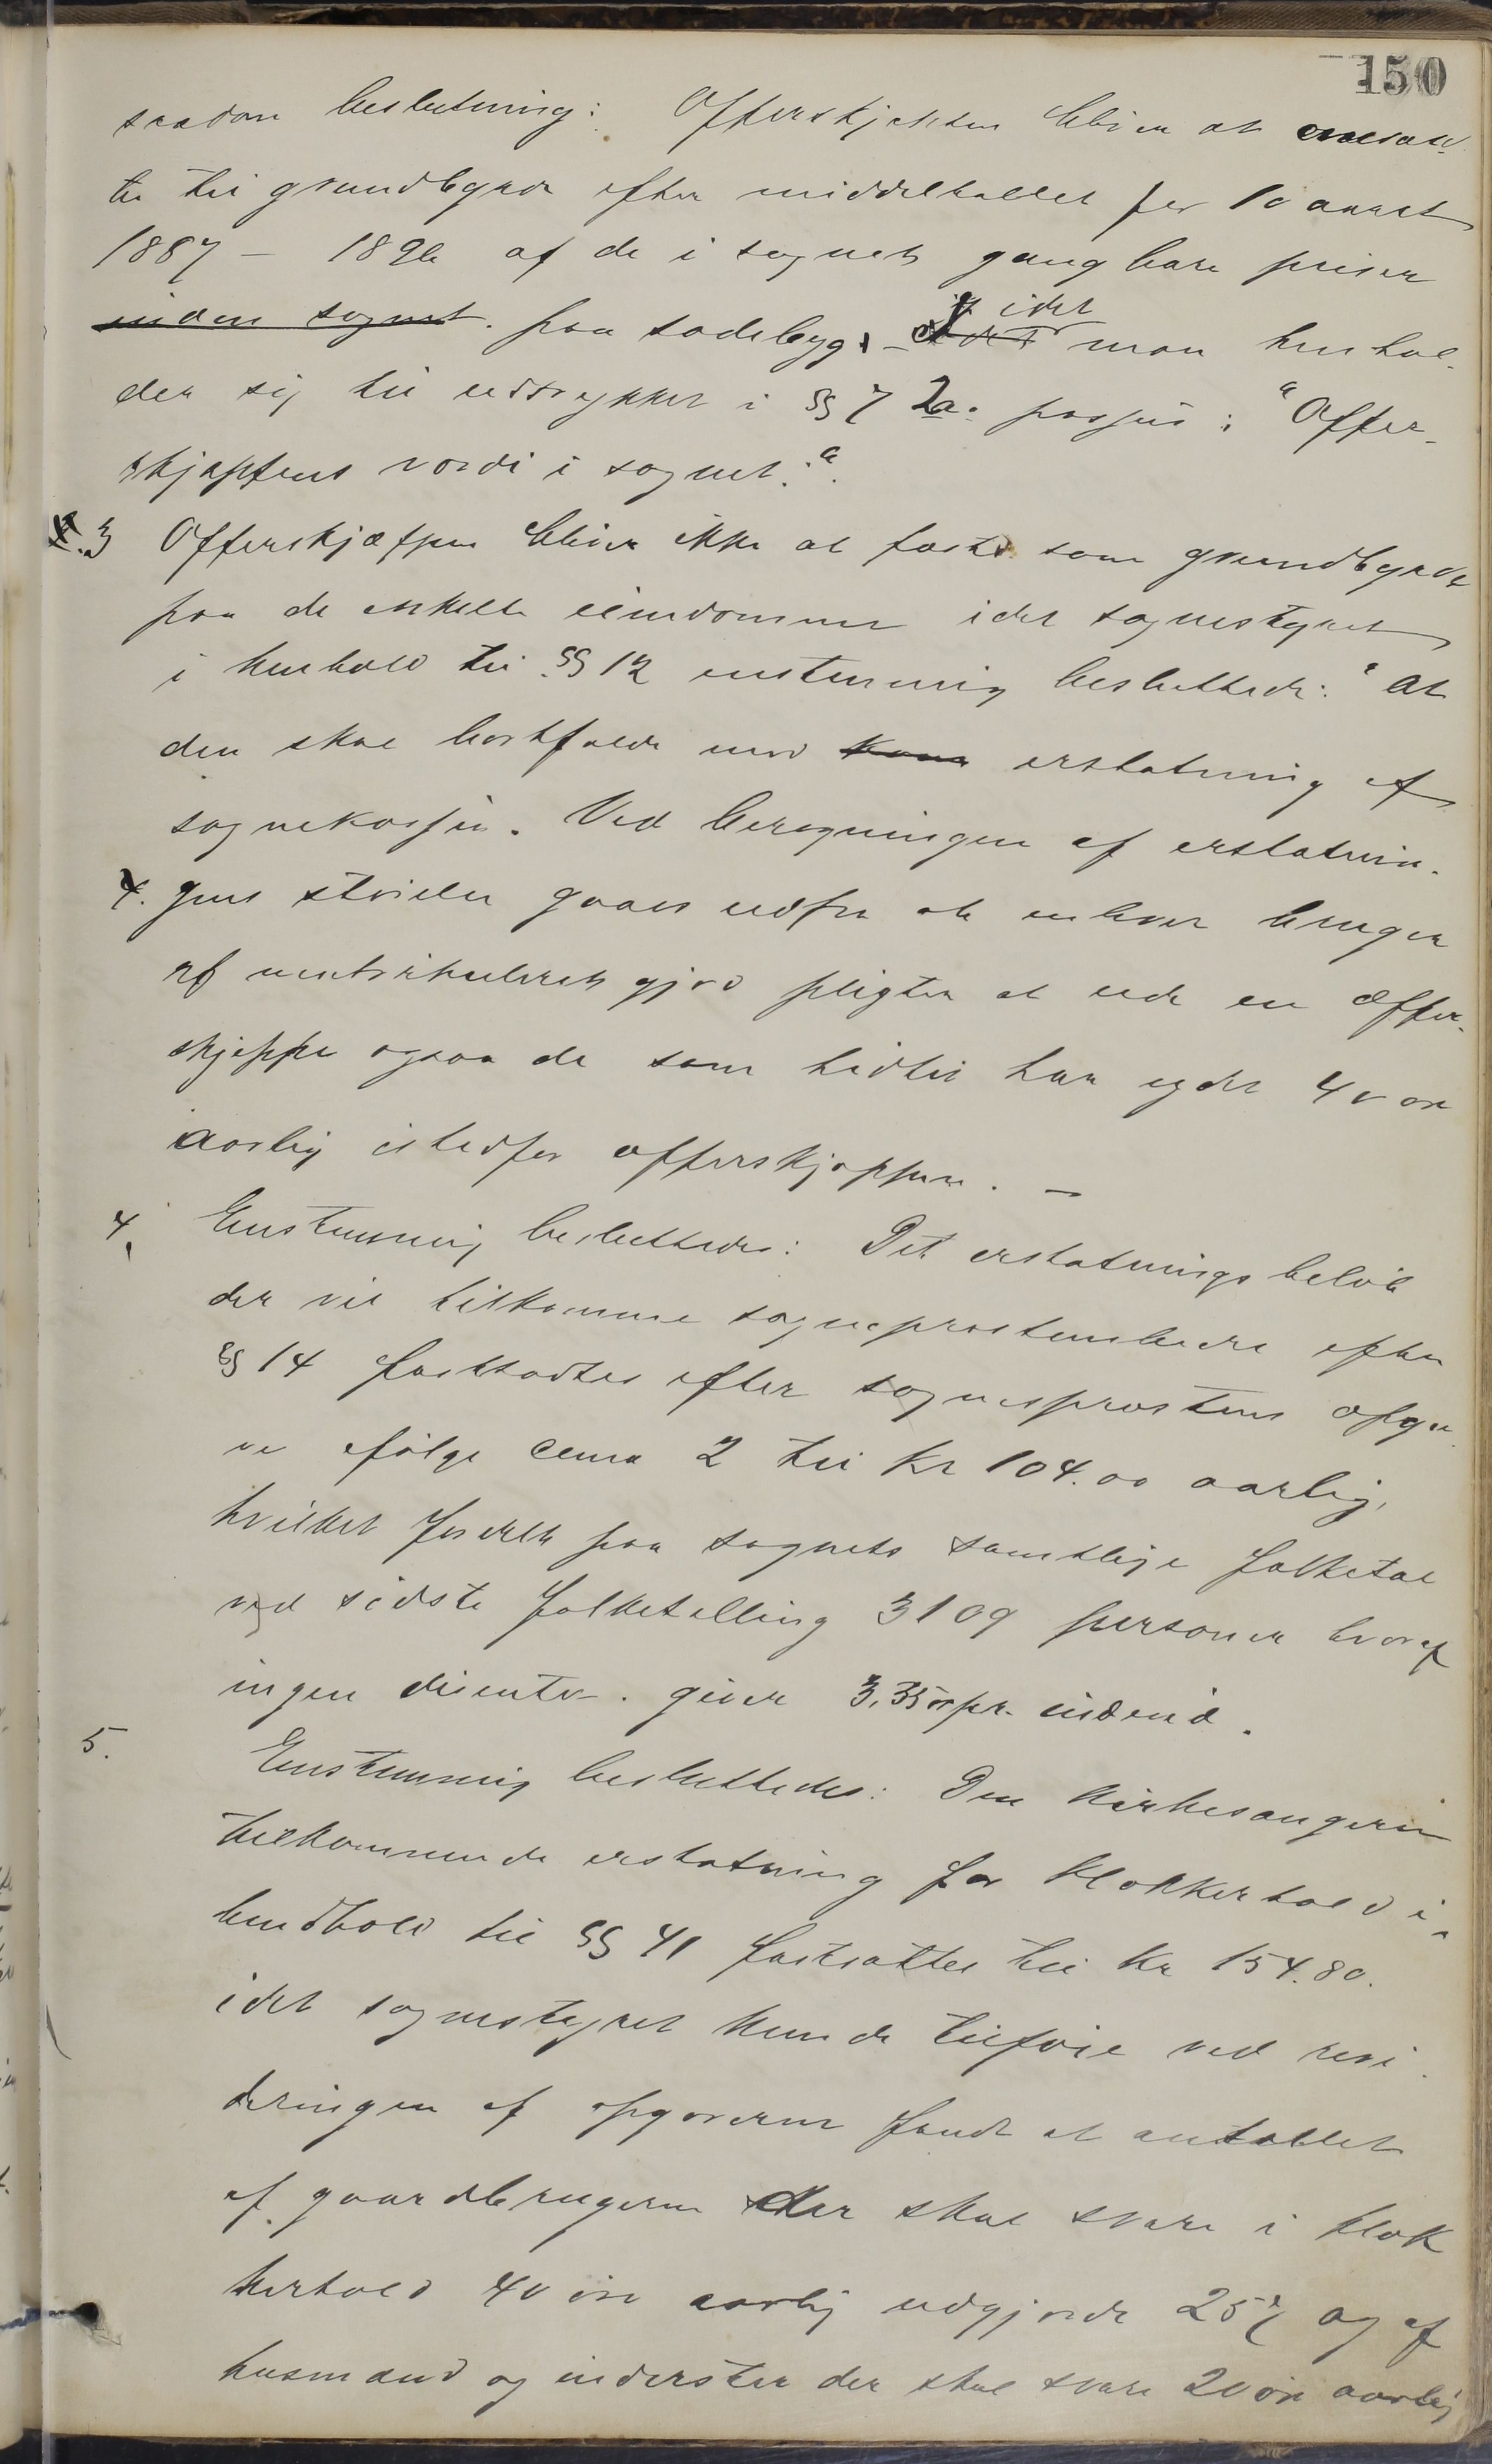 150
saadan beslutning: Offerskjæppen bliver at omsæt-
te til grundbyrde efter middeltallet for 10 aaret
1887 – 1896 af de i sognet gangbare priser
inden sognet. paa sadebyg, idet man henhol-
der sig til udtrykket i §§ 7 2a. passus: "Offer-
skjæppens værdi i sognet."
3 Offerskjæppen bliver ikke at fæste som grundbyrde
paa de enkelte eiendomme idet sognestyret
i henhold til §§ 12 enstemmig besluttede: "At
den skal bortfalde mod erstatning af
sognekassen. Ved beregningen af erstatnin-
4. gens størrelse gaaes ud fra at enhver bruger
af matrikuleret jord pligter at yde en offer-
skjæppe ogsaa de som hidtil har ydet 40 øre
aarlig istedfor offerskjæppen. –
4, Enstemmig besluttedes: Det erstatningsbeløb
der vil tilkomme sogneprestembede efter
§§ 14 fastsattes efter sogneprestens opga-
ve ifølge cema 2 til Kr 104.00 aarlig,
hvilket fordelt paa sognets samtlige folketal
ved sidste folketelling 3109 personer hvoraf
ingen disenter. giver 3,35 ør pr. individ.
5. Enstemmig besluttedes: Den kirkesangeren
tilkommende erstatning for klokkertold i
hendhold til §§ 41 fastsattes til Kr 154.80.
idet sognestyret kunde tilføie ved revi
deringen af opgaverne fandt at antallet
af gaardbrugerne der skal svare i klok
kertold 40 øre aarlig udgjorde 257 og af
husmænd og inderster der skal svare 20 ør aarlig